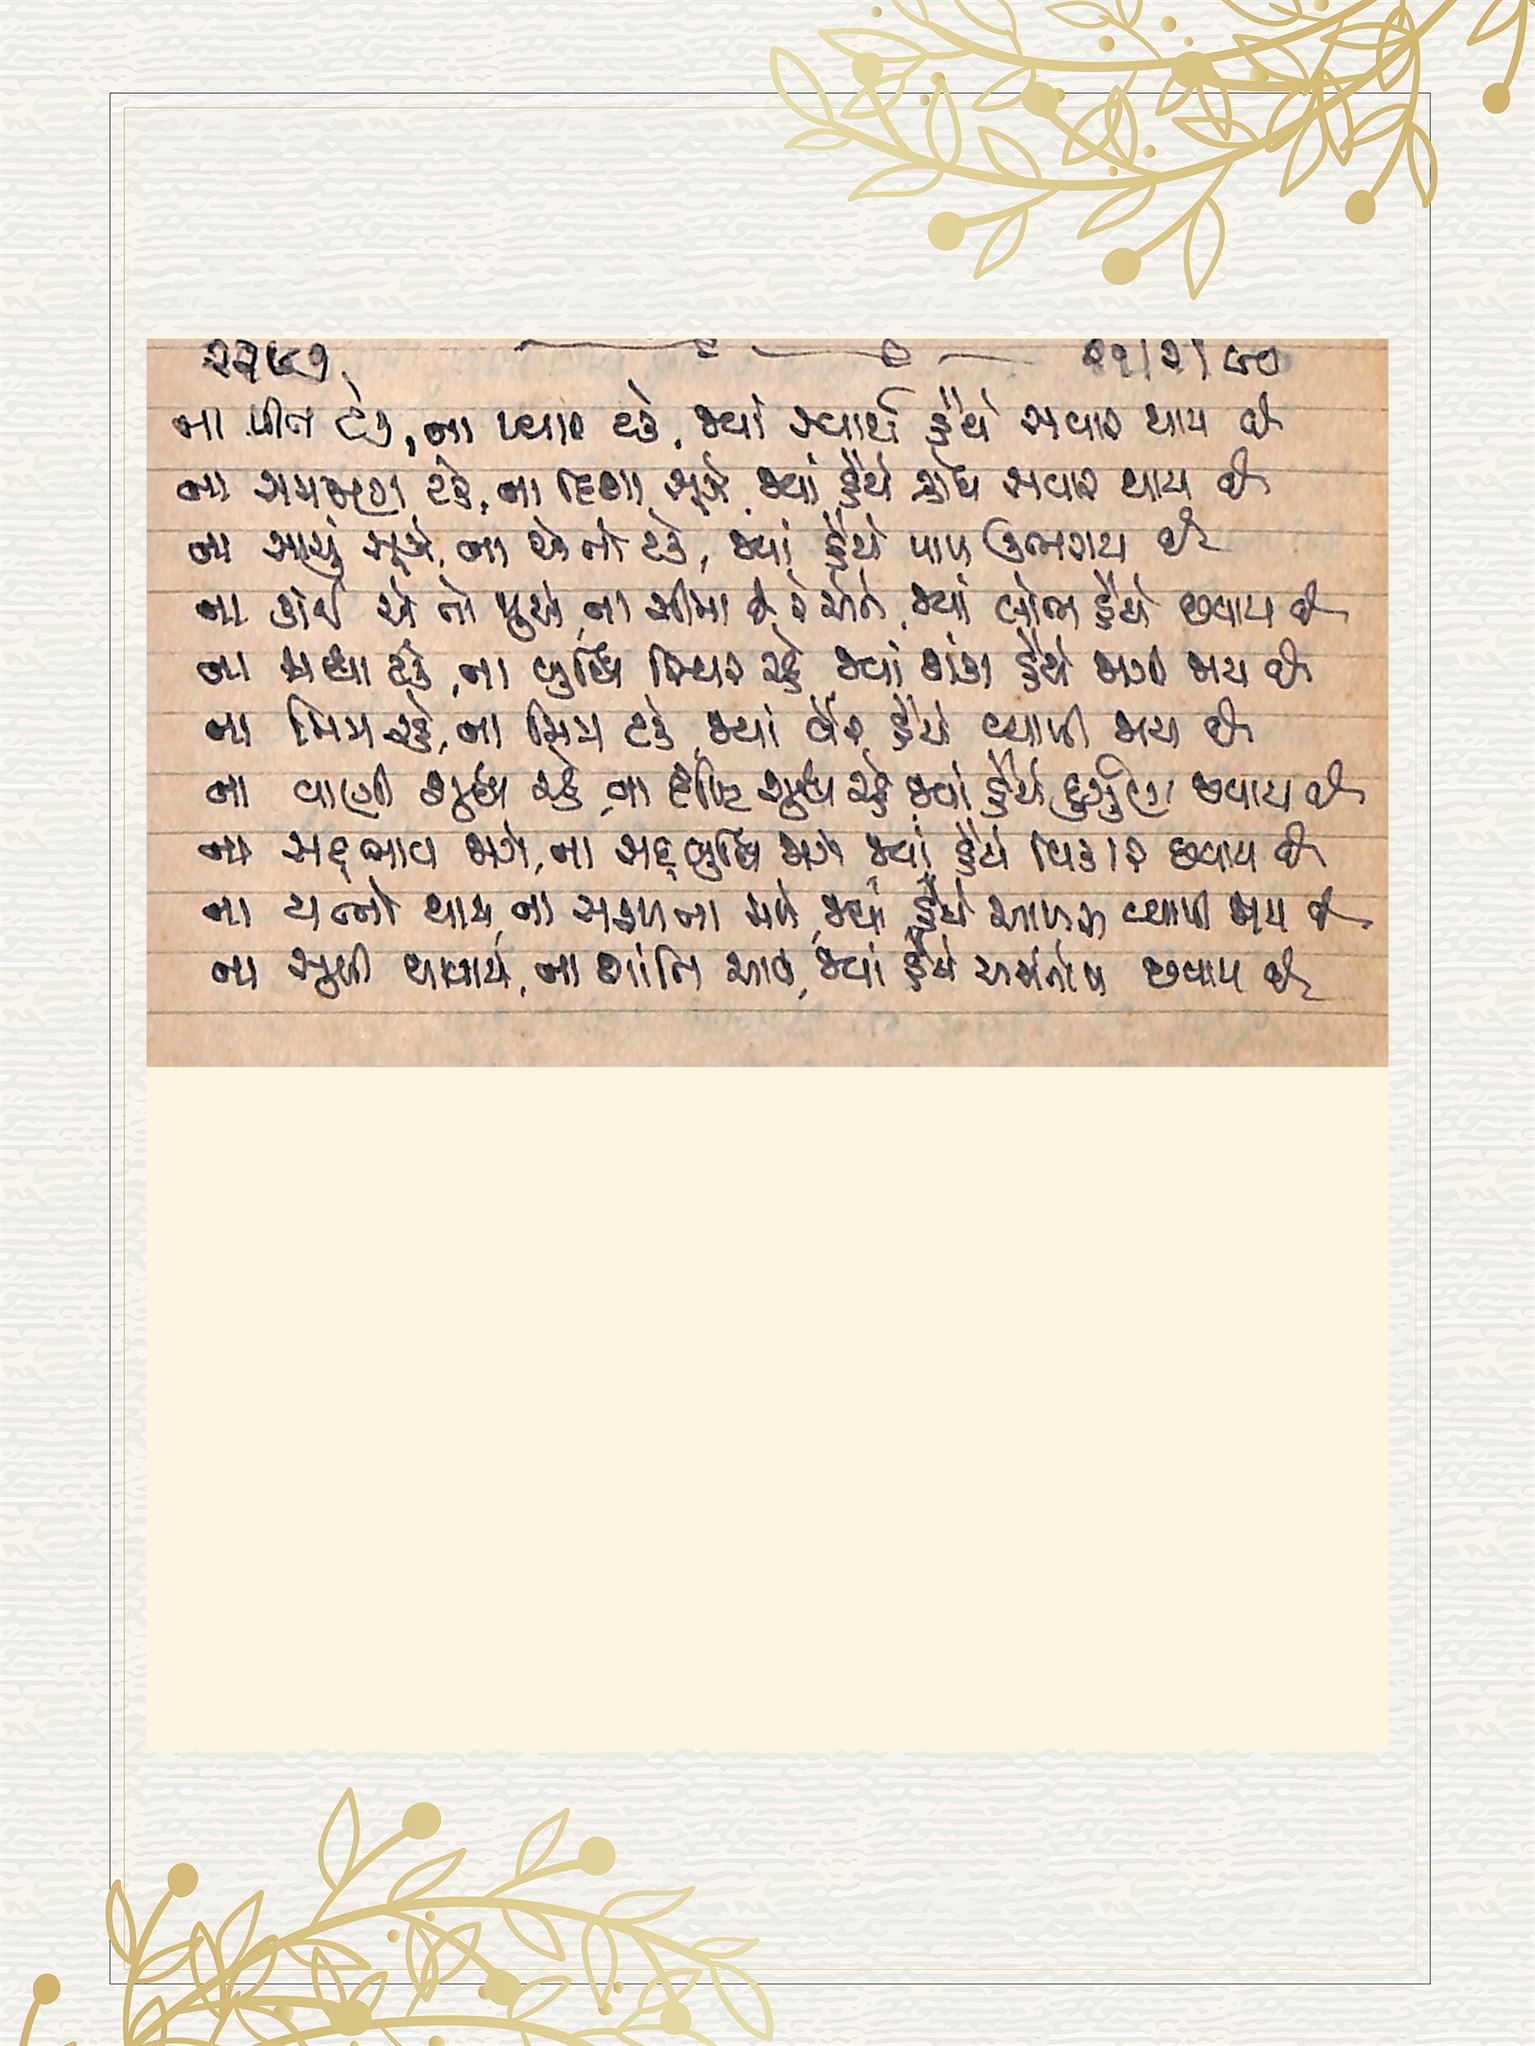 ૨૩૫૭. ૨૧/૨/૯૦
ના પ્રીત ટકે, ના પ્યાર ટકે, જ્યાં સ્વાર્થ હૈયે સવાર થાય છે
ના સમજણ ટકે, ના દિશા સૂઝે, જ્યાં હૈયે ક્રોધ સવાર થાય છે
ના સાચું સૂઝે, ના એ તો ટકે, જ્યાં હૈયે પાપ ઉભરાય છે
ના કોઈ એ તો જુએ, ના સીમા છે રે એને, જ્યાં લોભ હૈયે છવાય છે
ના શ્રદ્ધા ટકે, ના બુદ્ધિ સ્થિર રહે, જ્યાં શંકા હૈયે જાગી જાય છે
ના મિત્ર રહે, ના મિત્ર ટકે, જ્યાં વૈર હૈયે વ્યાપી જાય છે
ના વાણી શુદ્ધ રહે, ના દૃષ્ટિ શુદ્ધ રહે, જ્યાં હૈયે દુર્ગુણ છવાય છે
ના સદ્‌ભાવ જાગે, ના સદ્‌બુદ્ધિ જાગે, જ્યાં હૈયે વિકાર છવાય છે
ના યત્નો થાય, ના સફળતા મળે, જ્યાં હૈયે આળસ વ્યાપી જાય છે
ના સુખી થવાયે, ના શાંતિ આવે, જ્યાં હૈયે અસંતોષ છવાય છે